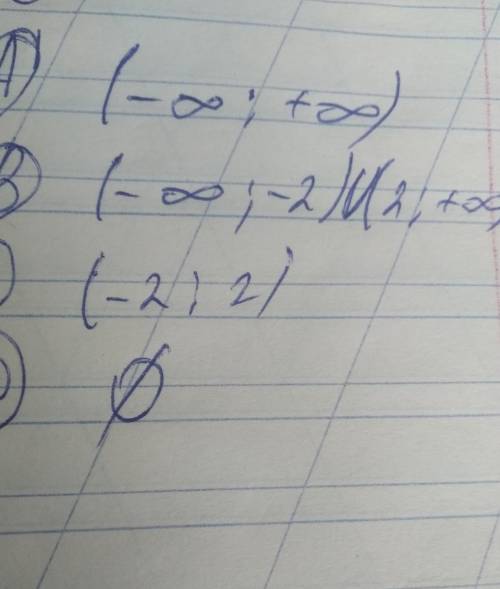 A) (-∞; +∞)
B) (-∞; -2)U(2; +∞
) (-2; 2)
) ∅